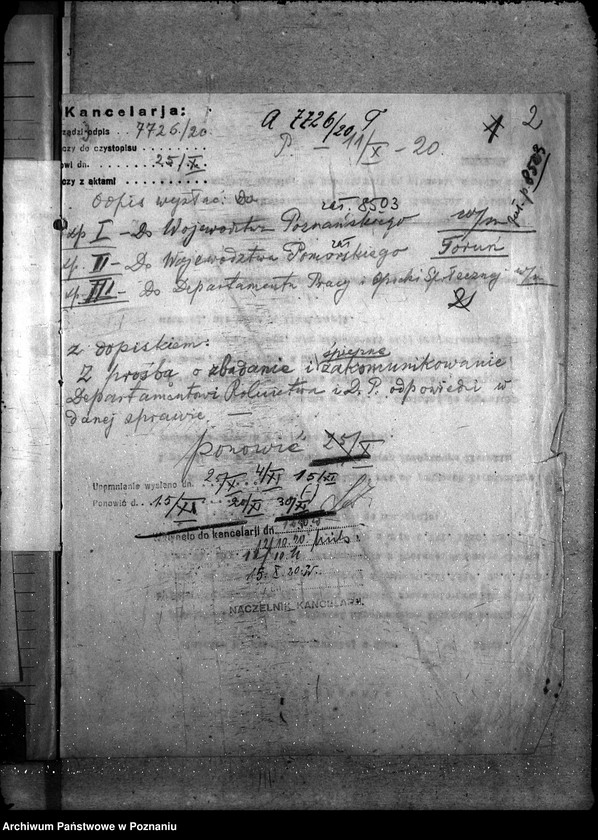 Kancelarja:
A 7726/20 T
2
ządzi odpis . . 7726/20
P. — 11/X - 20.
czy do czystopisu
wi dn. 25/X
czy z aktami
zał. p. 8503
Odpis wysłać: do
zał. 8503
I - Do Województwa Poznańskiego w/m
zał.
II - Do Województwa Pomorskiego Toruń
III - Do Departamentu Pracy i Opieki Społecznej w/m
z dopiskiem:
Z prośbą o zbadanie i zakomunikowanie
Departamentowi Rolnictwa i D. P. odpowiedzi w
danej sprawie. —
ponowić 25/X
Upomnienie wysłano dn. 25/X 4/XI 15/XI
Ponowić d. 15/XI 20/XI 30/XI
do kancelarji dn.
12/10.20.
15. X. 20.
NACZELNIK KANCELARJI
Archiwum Państwowe w Poznaniu